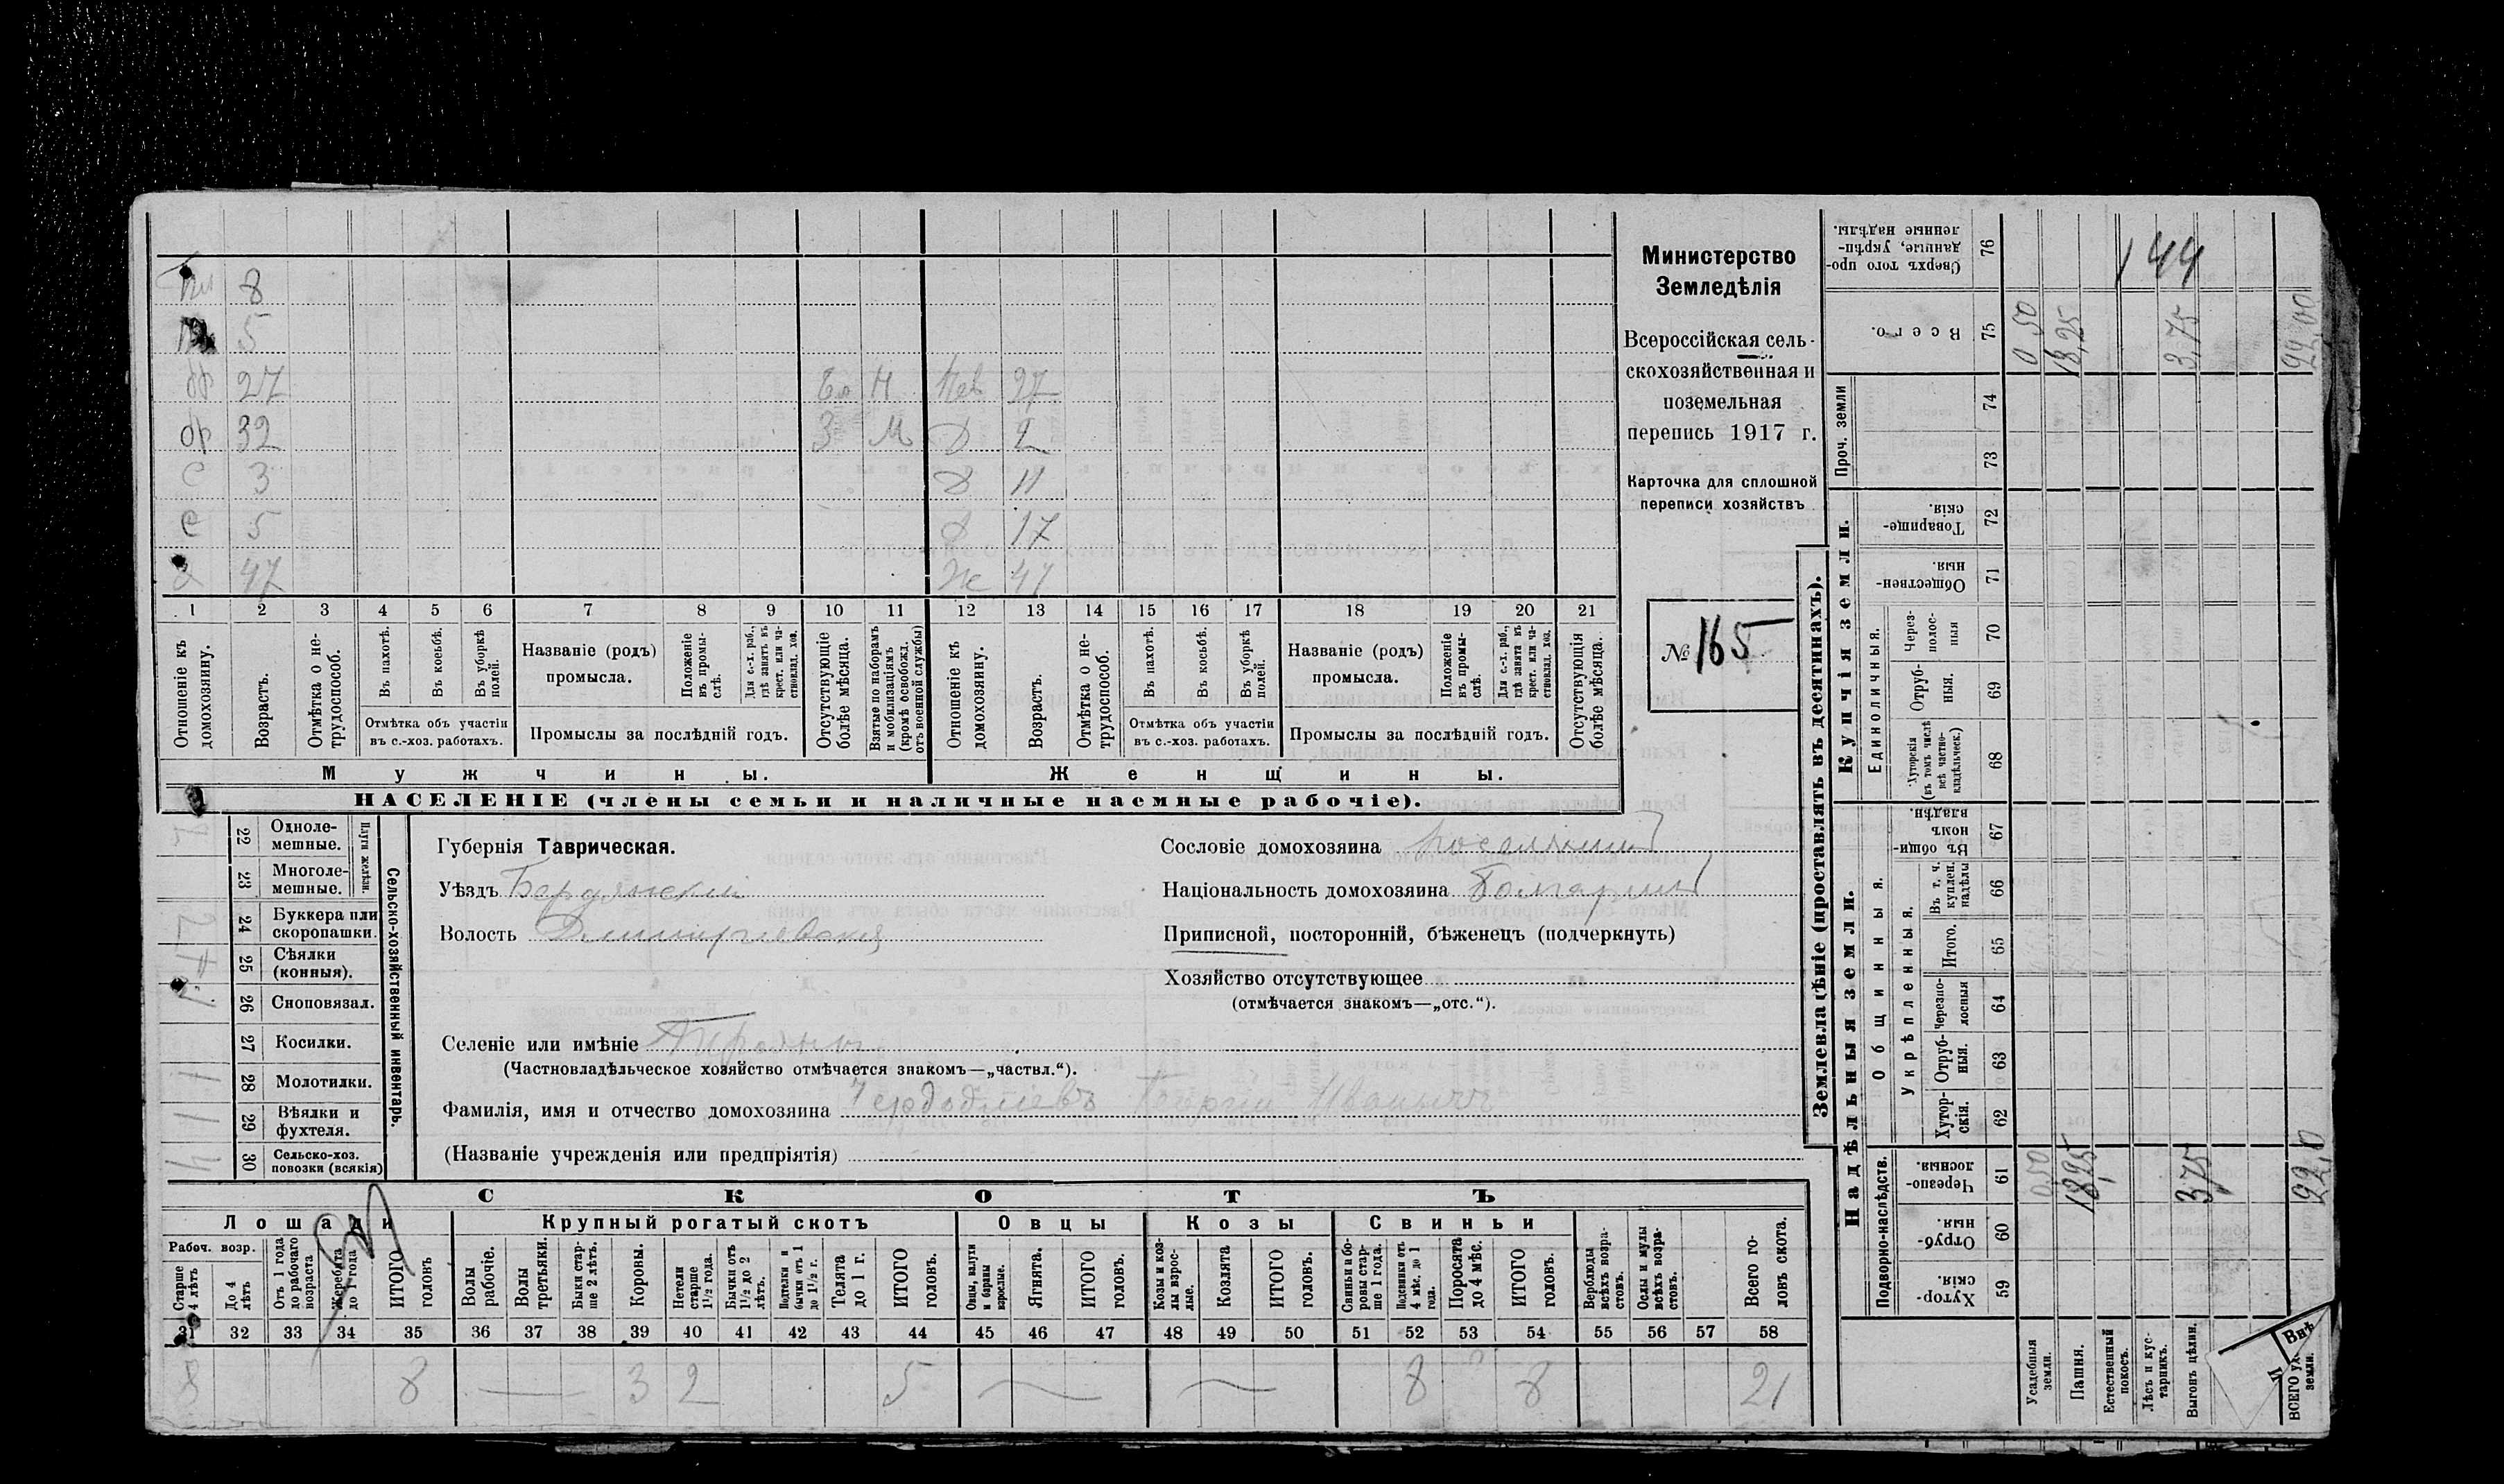 Министерство
Земледѣлія
Всероссійская сель-
скохозяйственная и
поземельная
перепись 1917 г.
Карточка для сплошной
переписи хозяйствъ
№ 165
8
5
27 27
ор 32 З М Д 2
с 3 Д 11
с 5 Д 17
47 Ж 47
1 2 3 4 5 6 7 8 9 10 11 12 13 14 15 16 17 18 19 20 21
Отношеніе къ домохозяину.
Возрастъ.
Отмѣтка о не-трудоспособ.
Въ пахотѣ.
Въ косьбѣ.
Въ уборкѣ полей.
Отмѣтка объ участіи
въ с.-хоз. работахъ.
Названіе (родъ)
промысла.
Положеніе въ промы-слѣ.
Для с.-х. раб., гдѣ занятъ въ крест. или ча-стновлад. хоз.
Промыслы за послѣдній годъ.
Отсутствующіе болѣе мѣсяца.
Взятые по наборамъ и мобилизаціямъ (кромѣ освобожд. отъ военной службы)
Отношеніе къ домохозяину.
Возрастъ.
Отмѣтка о не-трудоспособ.
Въ пахотѣ.
Въ косьбѣ.
Въ уборкѣ полей.
Отмѣтка объ участіи
въ с.-хоз. работахъ.
Названіе (родъ)
промысла.
Положеніе въ промы-слѣ.
Для с.-х. раб., гдѣ занята въ крест. или ча-стновлад. хоз.
Промыслы за послѣдній годъ.
Отсутствующія болѣе мѣсяца.
Мужчины. Женщины.
НАСЕЛЕНІЕ (члены семьи и наличные наемные рабочіе).
Сельско-хозяйственный инвентарь.
Плуги желѣзн.
22 Одноле-мешные.
23 Многоле-мешные.
24 Буккера или скоропашки.
25 Сѣялки (конныя).
26 Сноповязал.
27 Косилки.
28 Молотилки.
29 Вѣялки и фухтеля.
30 Сельско-хоз. повозки (всякія)
Губернія Таврическая.
Уѣздъ Бердянскій
Волость Дмитріевская
Сословіе домохозяина поселянинъ
Національность домохозяина Болгаринъ
Приписной, посторонній, бѣженецъ (подчеркнуть)
Хозяйство отсутствующее
(отмѣчается знакомъ—„отс.“).
Селеніе или имѣніе
(Частновладѣльческое хозяйство отмѣчается знакомъ—„частвл.“).
Фамилія, имя и отчество домохозяина Иванычъ
(Названіе учрежденія или предпріятія)
СКОТЪ
Лошади Крупный рогатый скотъ Овцы Козы Свиньи
Рабоч. возр.
Старше 4 лѣтъ
До 4 лѣтъ
Отъ 1 года до рабочаго возраста
Жеребята до 1 года
ИТОГО головъ
Волы рабочіе.
Волы третьяки.
Быки стар-ше 2 лѣтъ.
Коровы.
Нетели старше 1½ года.
Бычки отъ 1½ до 2 лѣтъ.
Подтелки и бычки отъ 1 до 1½ г.
Телята до 1 г.
ИТОГО головъ.
Овцы, валухи и бараны взрослые.
Ягнята.
ИТОГО головъ.
Козы и коз-лы взрос-лые.
Козлята
ИТОГО головъ.
Свиньи и бо-ровы стар-ше 1 года.
Подсвинки отъ 4 мѣс. до 1 года.
Поросята до 4 мѣс.
ИТОГО головъ.
Верблюды всѣхъ возра-стовъ.
Ослы и мулы всѣхъ возра-стовъ.
Всего го-ловъ скота.
31 32 33 34 35 36 37 38 39 40 41 42 43 44 45 46 47 48 49 50 51 52 53 54 55 56 57 58
8 8 3 2 5 8 8 21
Землевладѣніе (проставлять въ десятинахъ).
Надѣльныя земли. Купчія земли. Проч. земли
Подворно-наслѣдств.
Общинныя.
Укрѣпленныя.
Единоличныя.
59 Хутор-скія.
60 Отруб-ныя.
61 Черезпо-лосныя.
62 Хутор-скія.
63 Отруб-ныя.
64 Черезпо-лосныя
65 Итого.
66 Въ т. ч. куплен. надѣлы
67 Въ общи-номъ владѣн.
68 Хуторскія (въ томъ числѣ всѣ частно-владѣльческ.)
69 Отруб-ныя.
70 Через-полос-ныя
71 Обществен-ныя.
72 Товарище-скія.
73
74
75 Всего.
76 Сверхъ того про-данные, укрѣп-ленные надѣлы.
Усадебныя земли.
Пашня.
Естественный покосъ.
Лѣсъ и кус-тарникъ.
Выгонъ цѣлин.
Внѣ
ВСЕГО уд. земли.
0,50 18,25 3,75 22,0
0,50 18,25 3,75 22,00
144